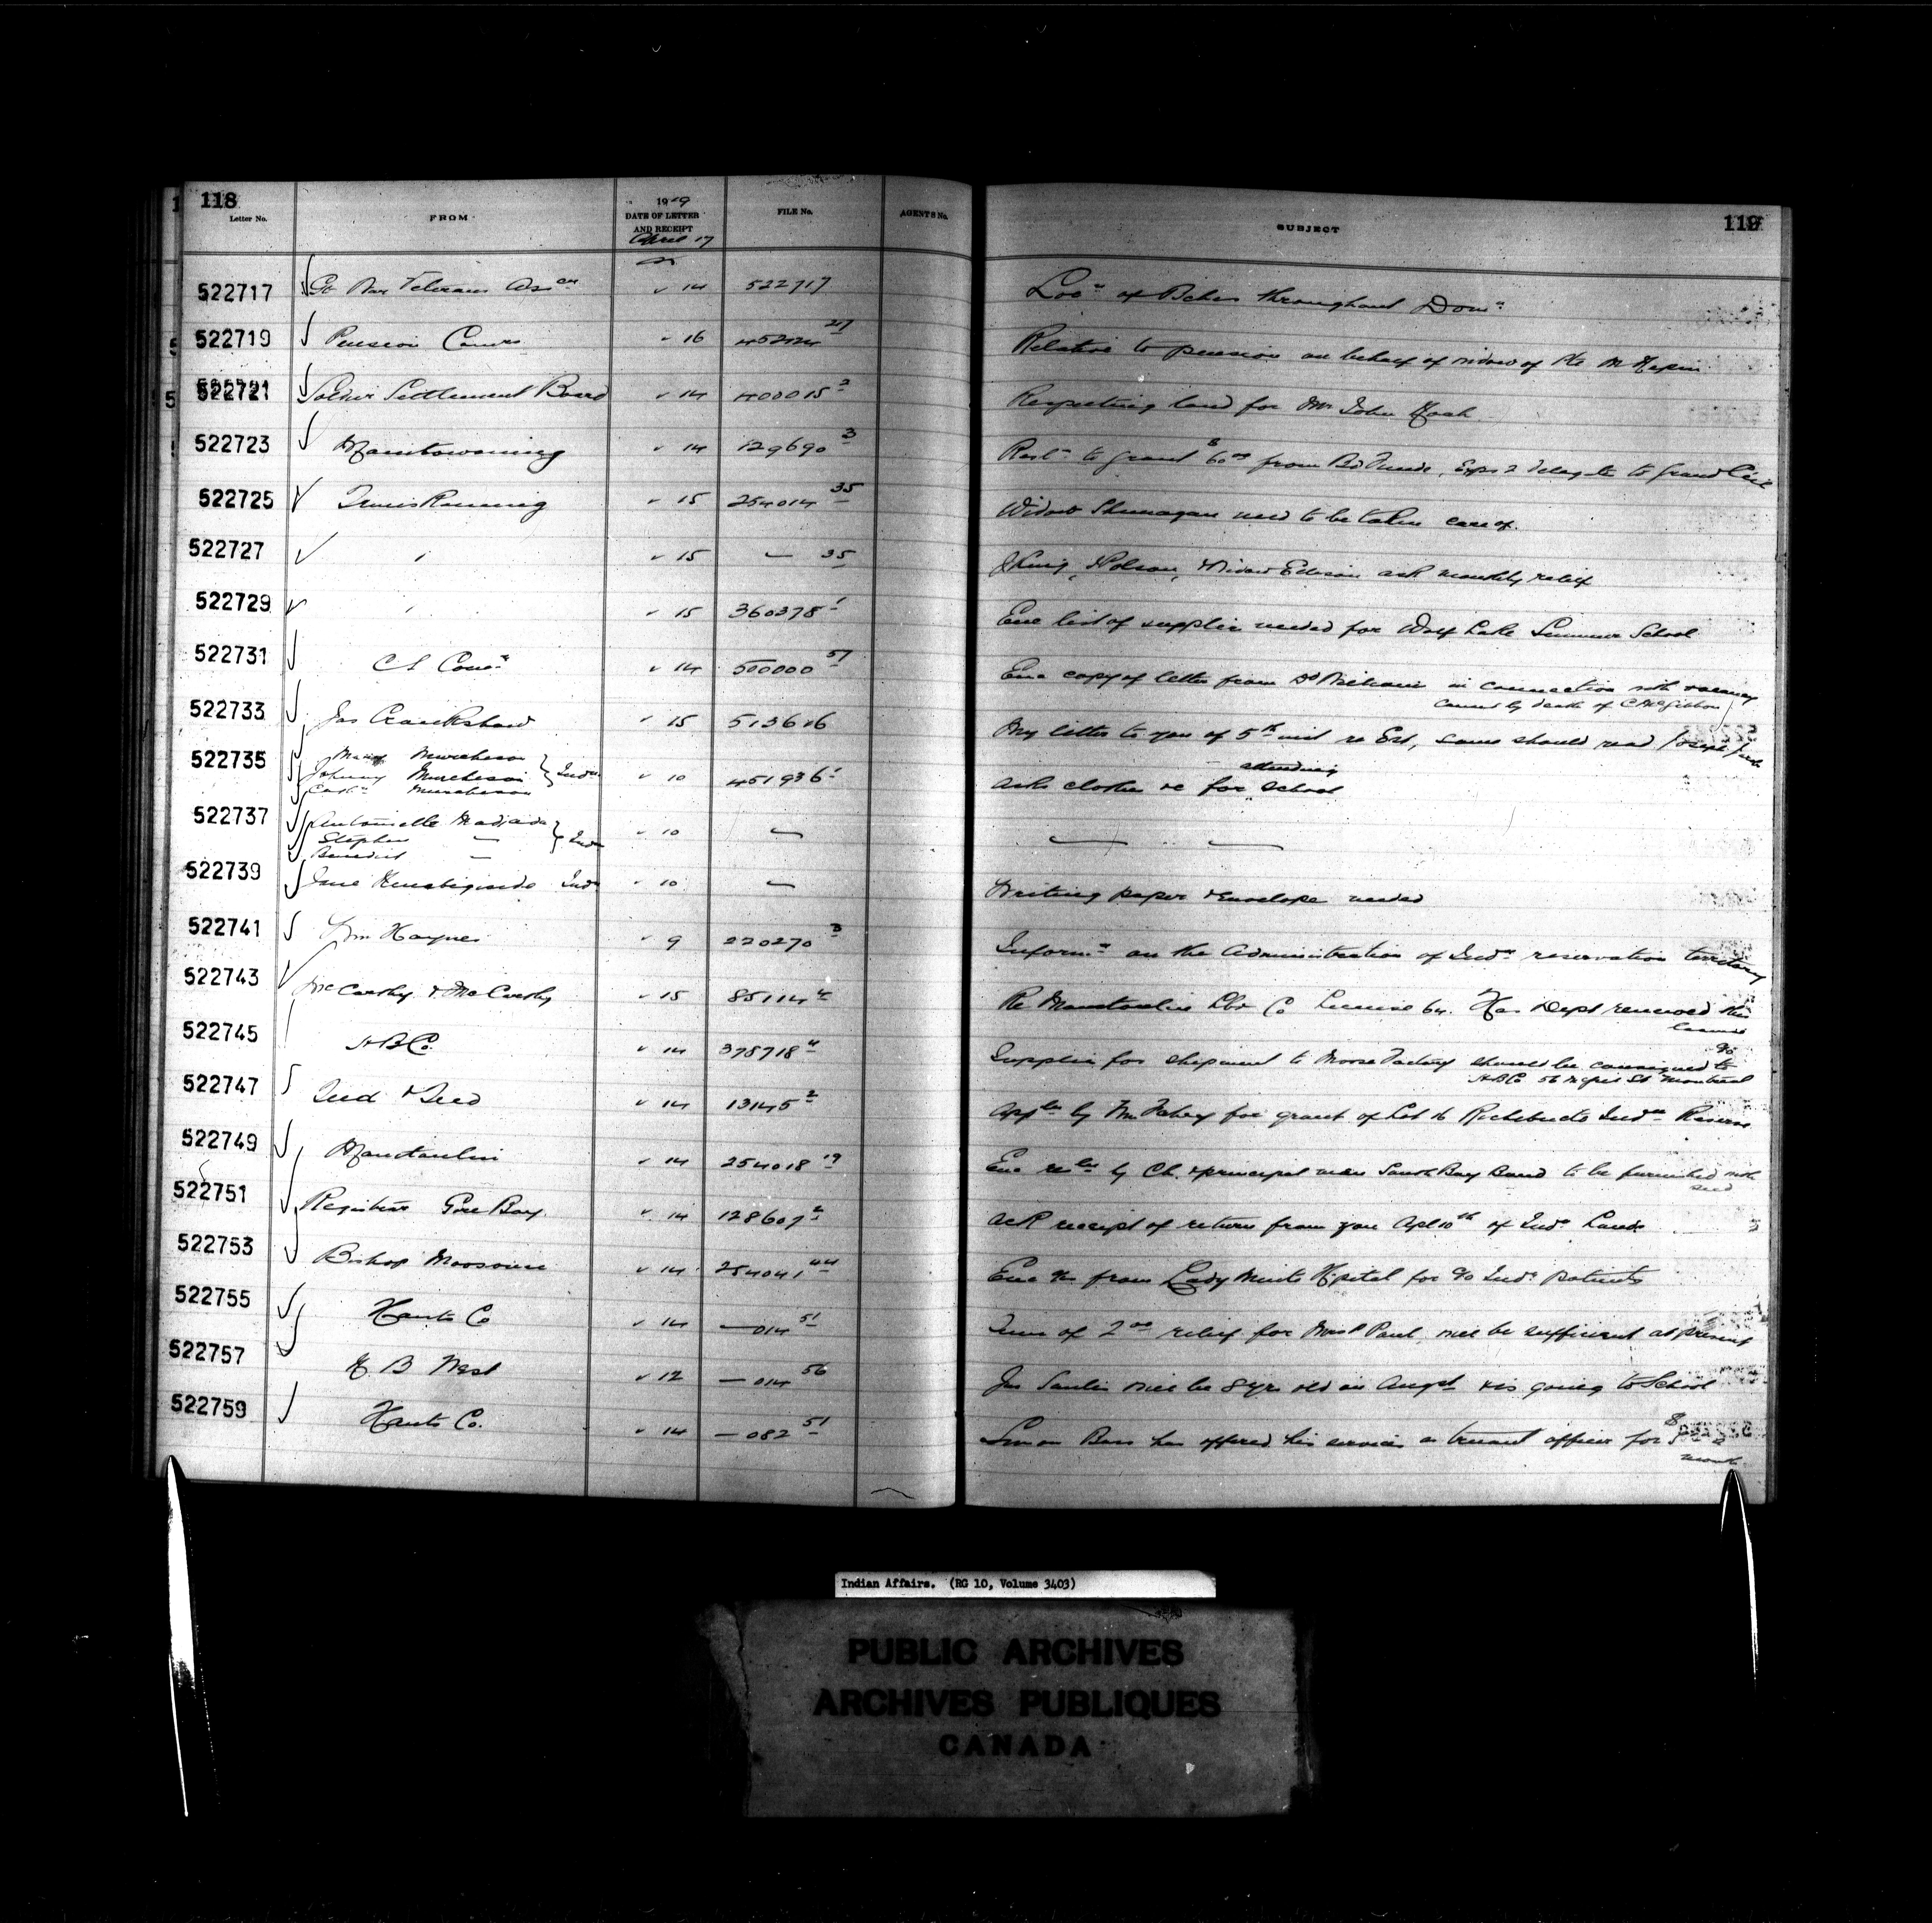 118
Letter No. FROM 1919 DATE OF LETTER AND RECEIPT FILE No. AGENTS No. SUBJECT 119
April 17
522717 Gt War Veterans Assn 14 522717 Locn of throughout Domn
522719 Pension Comrs 16 452124 27 Relative to pension on behalf of widow of Pte M
522721 Soldier Settlement Board 14 400015 2 Respecting land for Mr John
522723 Manitowaning 14 129690 3 Resln to grant $60 00 from Bd Funds, Exps 2 delegates to Grand
522725 15 254014 35 Widow need to be taken care of.
522727 " 15 — 35 J King, Polson, Widow ask monthly relief
522729 " 15 360378 1 Enc list of supplies needed for Wolf Lake Summer School
522731 C S Comn 14 500000 57 Enc copy of letter from Dr in connection with vacancy
caused by death of C McGibbon
522733 Jas Crankshaw 15 513616 My letter to you of 5th inst re Est, same should read Joseph
522735 Mary Murcheson
Johnny Murcheson } Inds 10 451936 1 Ask clothes &c for attending school
Murcheson
522737 Antoinette
Stephen — } Inds 10 — — —
Benedict —
522739 Jane Ind 10 — Writing paper & envelopes needed
522741 Wm Haynes 9 220270 3 Informn on the Administration of Indn reservation territory
522743 McCarthy & McCarthy 15 85114 4 Re Manitoulin Lbr Co License 64. Has Dept renewed this
license
522745 H B Co. 14 378718 4 Supplies for shipment to Moose Factory should be consigned to
c/o H B Co 56 McGill St Montreal
522747 14 13145 2 Appln by Wm Fahey for grant of Lot 16 Richibucto Indn Reserve
522749 Manitoulin 14 254018 19 Enc by Ch. & principal men South Bay Band to be furnished with
seed
522751 Registrar Gore Bay. 14 128607 2 Ack receipt of return from you Apl 10th of Indn Lands
522753 Bishop Moosonee 14 254041 44 Enc a/c from Lady Minto Hpital for a/c Indn patients
522755 Hants Co 14 — 014 51 Sum of 2 00 relief for Mrs P Paul will be sufficient at present
522757 N B West 12 — 014 56 Jas will be 8 yrs old in Augst & is going to School
522759 Hants Co. 14 — 082 51 Simon Bass has offered his services as truant officer for $
month
Indian Affairs. (RG 10, Volume 3403)
PUBLIC ARCHIVES
ARCHIVES PUBLIQUES
CANADA